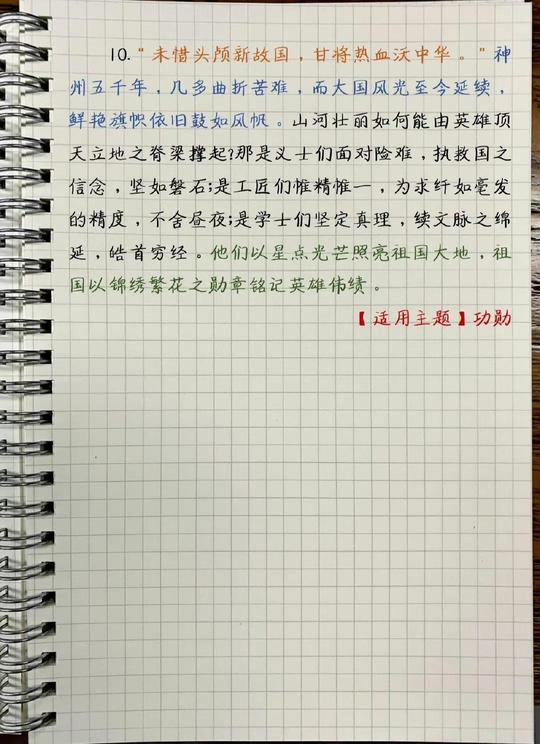 10.“未惜头颅新故国，甘将热血沃中华。”神
州五千年，几多曲折苦难，而大国风光至今延续，
鲜艳旗帜依旧鼓如风帆。山河壮丽如何能由英雄顶
天立地之脊梁撑起?那是义士们面对险难，执救国之
信念，坚如磐石;是工匠们惟精惟一，为求纤如毫发
的精度，不舍昼夜;是学士们坚定真理，续文脉之绵
延，皓首穷经。他们以星点光芒照亮祖国大地，祖
国以锦绣繁花之勋章铭记英雄伟绩。
【适用主题】功勋